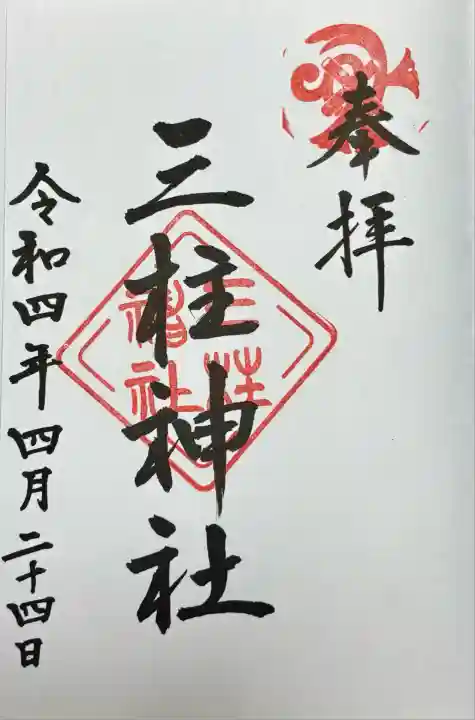 奉拝
三柱神社
令和四年四月二十四日